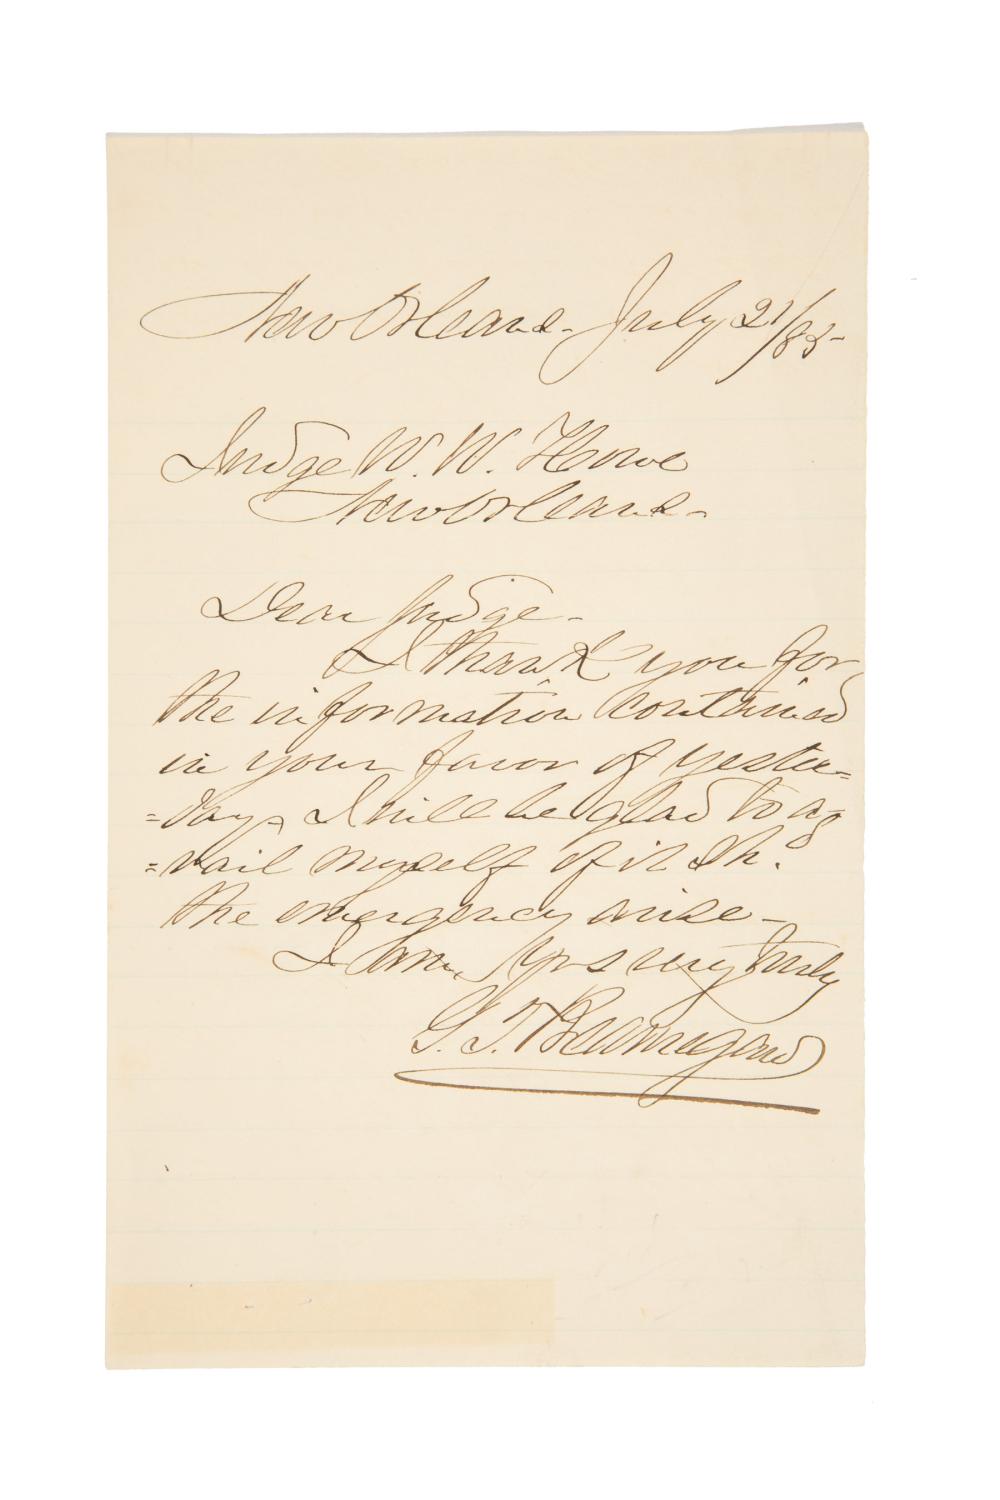 New Orleans - July 21/85-
Judge W. W. Howe
New Orleans -
Dear Judge -
I thank you for
the information contained
in your favor of yester=
=day - I will be glad to a=
=vail myself of it shd.
the emergency arise -
I am, Yrs very truly
G. T. Beauregard